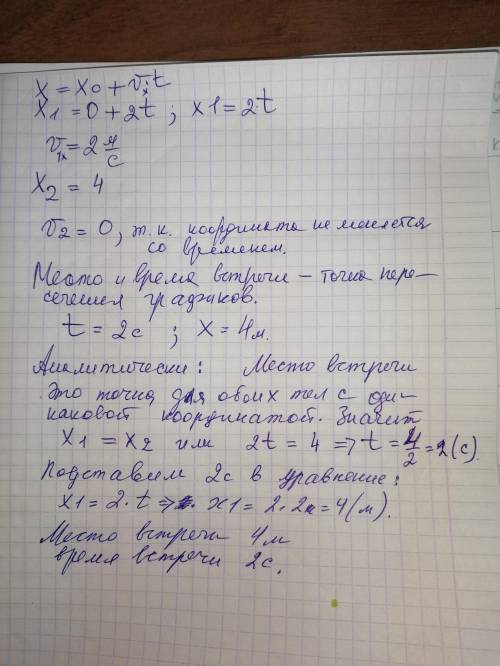 x = x0 + vₓt
x1 = 0 + 2t ; x1 = 2·t
v₁ₓ = 2 м/с
x₂ = 4
v₂ = 0, т.к. координата не меняется
со временем.
Место и время встречи – точка пере-
сечения графиков.
t = 2с ; x = 4м.
Аналитически: Место встречи
это точка для обоих тел с оди-
наковой координатой. Значит
x1 = x2 или 2t = 4 => t = 4/2 = 2(с).
Подставим 2с в уравнение:
x1 = 2·t => x1 = 2·2 = 4(м).
Место встречи 4м
время встречи 2с.